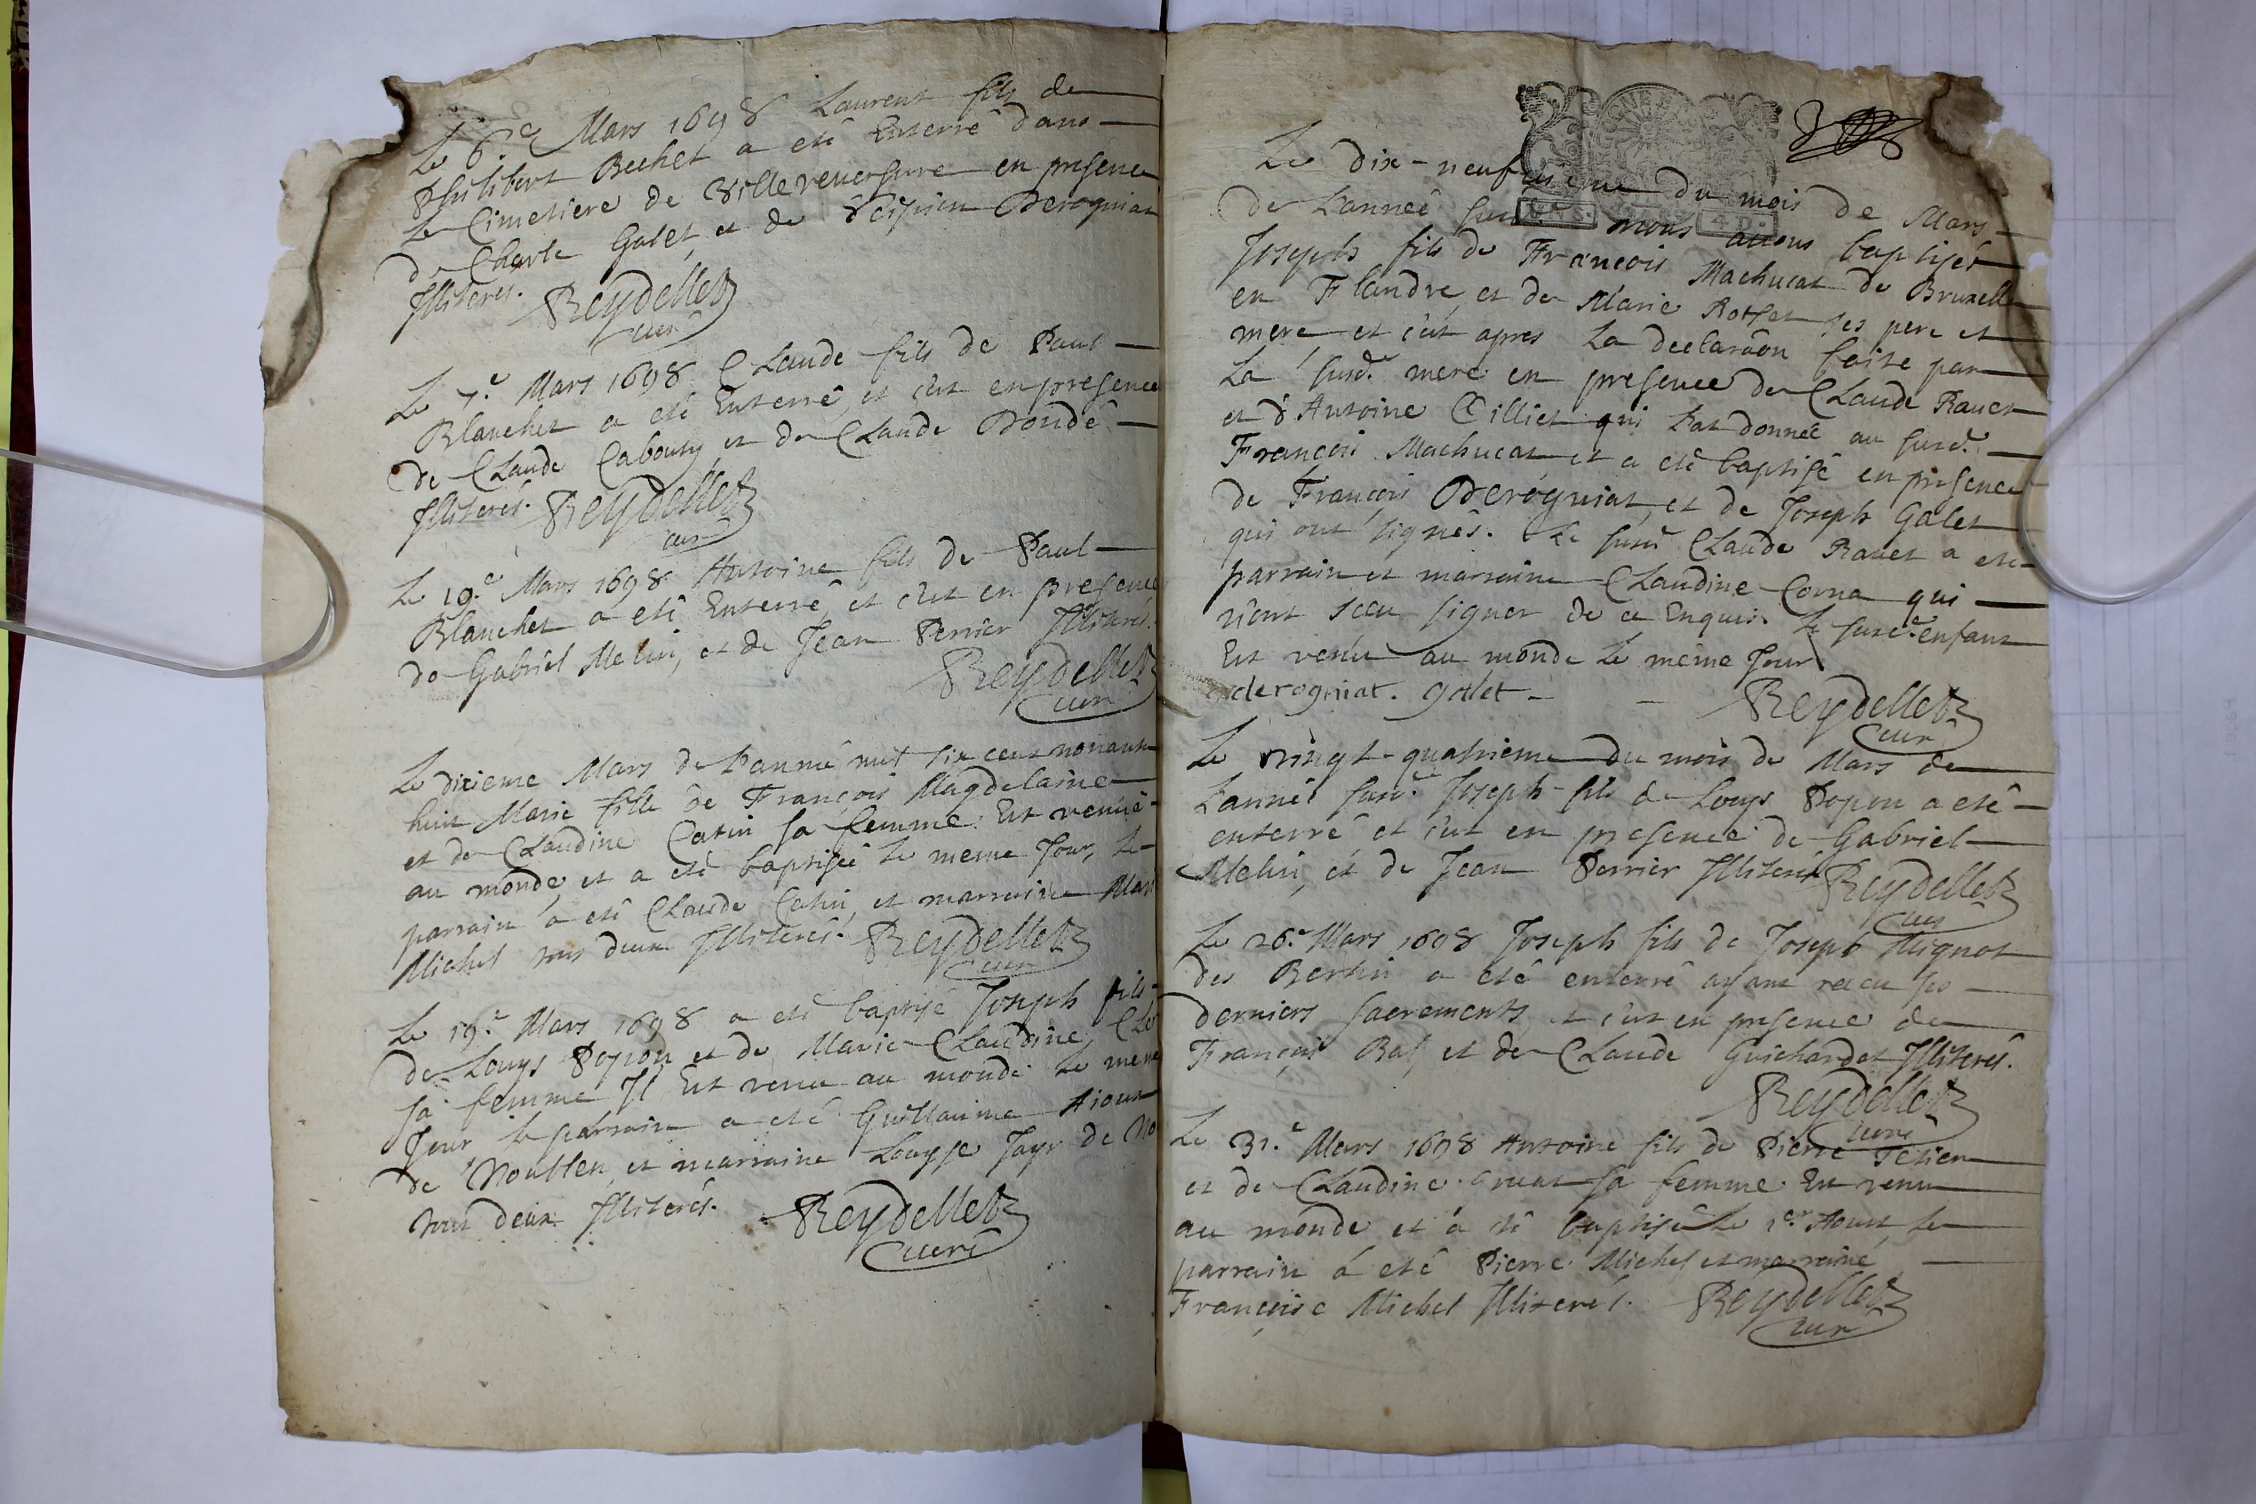 Le 6.e Mars 1698 Laurent fils de
Philibert Bechet a eté Enterré dans
Le Cimetiere de Villereversure en presence
de Charle Galet, et de Derogniat
Illiterés. Reydellet
curé
Le 7.e Mars 1698 Claude fils de Paul
Blanchet a eté Enterré, et c'est en presence
de Claude Cabouty et de Claude Dondé
Illiterés. Reydellet
curé
Le 10.e Mars 1698 Antoine fils de Paul
Blanchet a eté Enterré, et c'est en presence
de Gabriel Melin, et de Jean Perrier Illiterés.
Reydellet
curé
Le dixieme Mars de L'année mil six cent nonante
huit Marie fille de François Magdelaine
et de Claudine Catin sa femme Est venuë
au monde, et a eté baptiseé Le meme Jour, Le
parrain a eté Claude Catin, et marraine Mari
Michel tous deux Illiterés. Reydellet
curé
Le 19.e Mars 1698 a eté baptisé Joseph fils
de Louys Popon et de Marie Claudine
sa femme Il Est venu au monde Le meme
Jour, Le parrain a eté Guillaume
de et marraine Louyse Jayr de No
tous deux Illiterés. Reydellet
curé
Le dix-neufvieme du mois de Mars
de L'anneé susd. nous avons baptiset
Joseph fils de François Machucat de Bruxelle
en Flandre, et de Marie Rotset ses pere et
mere et c'est apres La declaraôn faite par
La susd.e mere en presence de Claude Ravet
et d'Antoine Cilliet qui L'at donneé au susd.
François Machucat, et a eté baptisé en presence
de François Derogniat, et de Joseph Galet
qui ont signés. Le susd. Claude Ravet a eté
parrain et marraine Claudine Corna qui
n'ont sceu signer de ce Enquis. Le susd. enfant
Est venu au monde Le meme Jour
derogniat. galet Reydellet
curé
Le vingt-quatrieme du mois de Mars de
L'anneé susd. Joseph fils de Louys Popon a eté
enterré, et c'est en presence de Gabriel
Melin, et de Jean Perrier Illiterés Reydellet
curé
Le 26.e Mars 1698 Joseph fils de Joseph Mignot
des Bertin a eté enterré ayant receu ses
derniers sacrements et c'est en presence de
François Bal, et de Claude Guichardet Illiterés.
Reydellet
curé
Le 31.e Mars 1698 Antoine fils de Pierre
et de Claudine sa femme Est venu
au monde et a eté baptisé Le 1.er Le
parrain a eté Pierre Michel et marraine
Françoise Michel Illiterés. Reydellet
curé